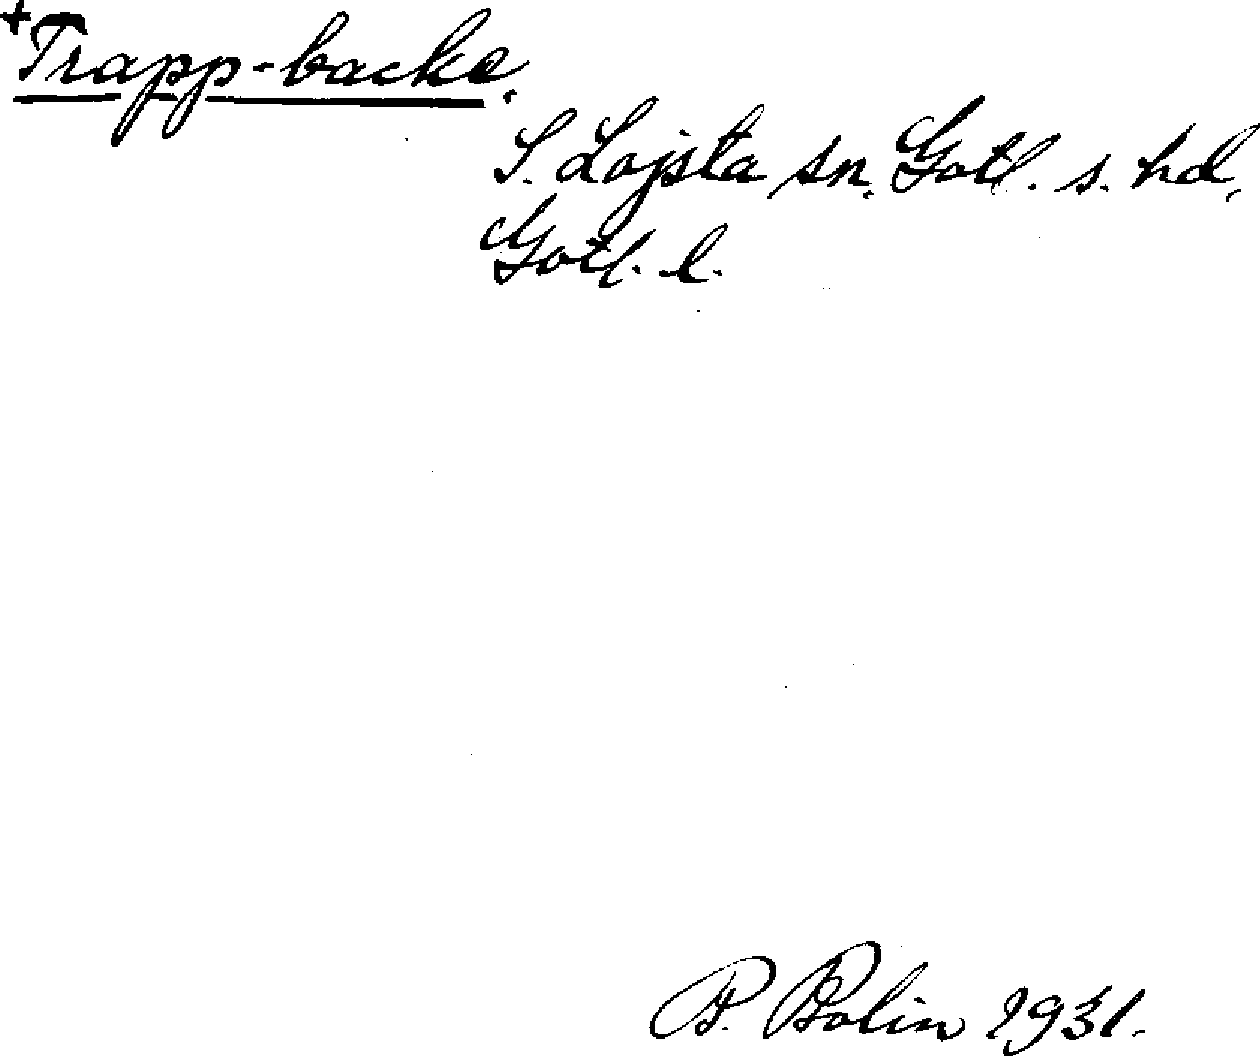 +Trapp-backe.
S. Lojsta sn. Gotl. s. hd,
Gotl. l.
P. Bolin 1931.